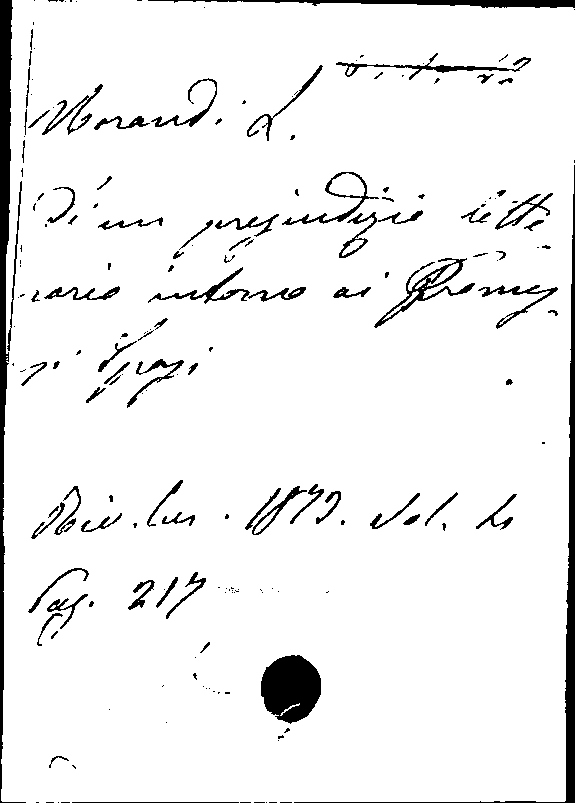 Morandi L.
D'un pregiudizio lette-
rario intorno ai Promes-
si Sposi
Riv. Eur. 1873. Vol. 4
Pag. 217